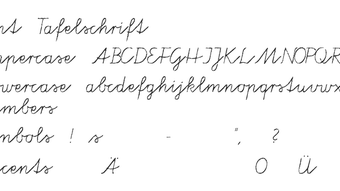 nt Tafelschrift
ppercase ABCDEFGHIJKLMNOPQR
wercase abcdefghijklmnopqrstuvwx
mbers
mbols ! s - ", ?
cents Ä O Ü